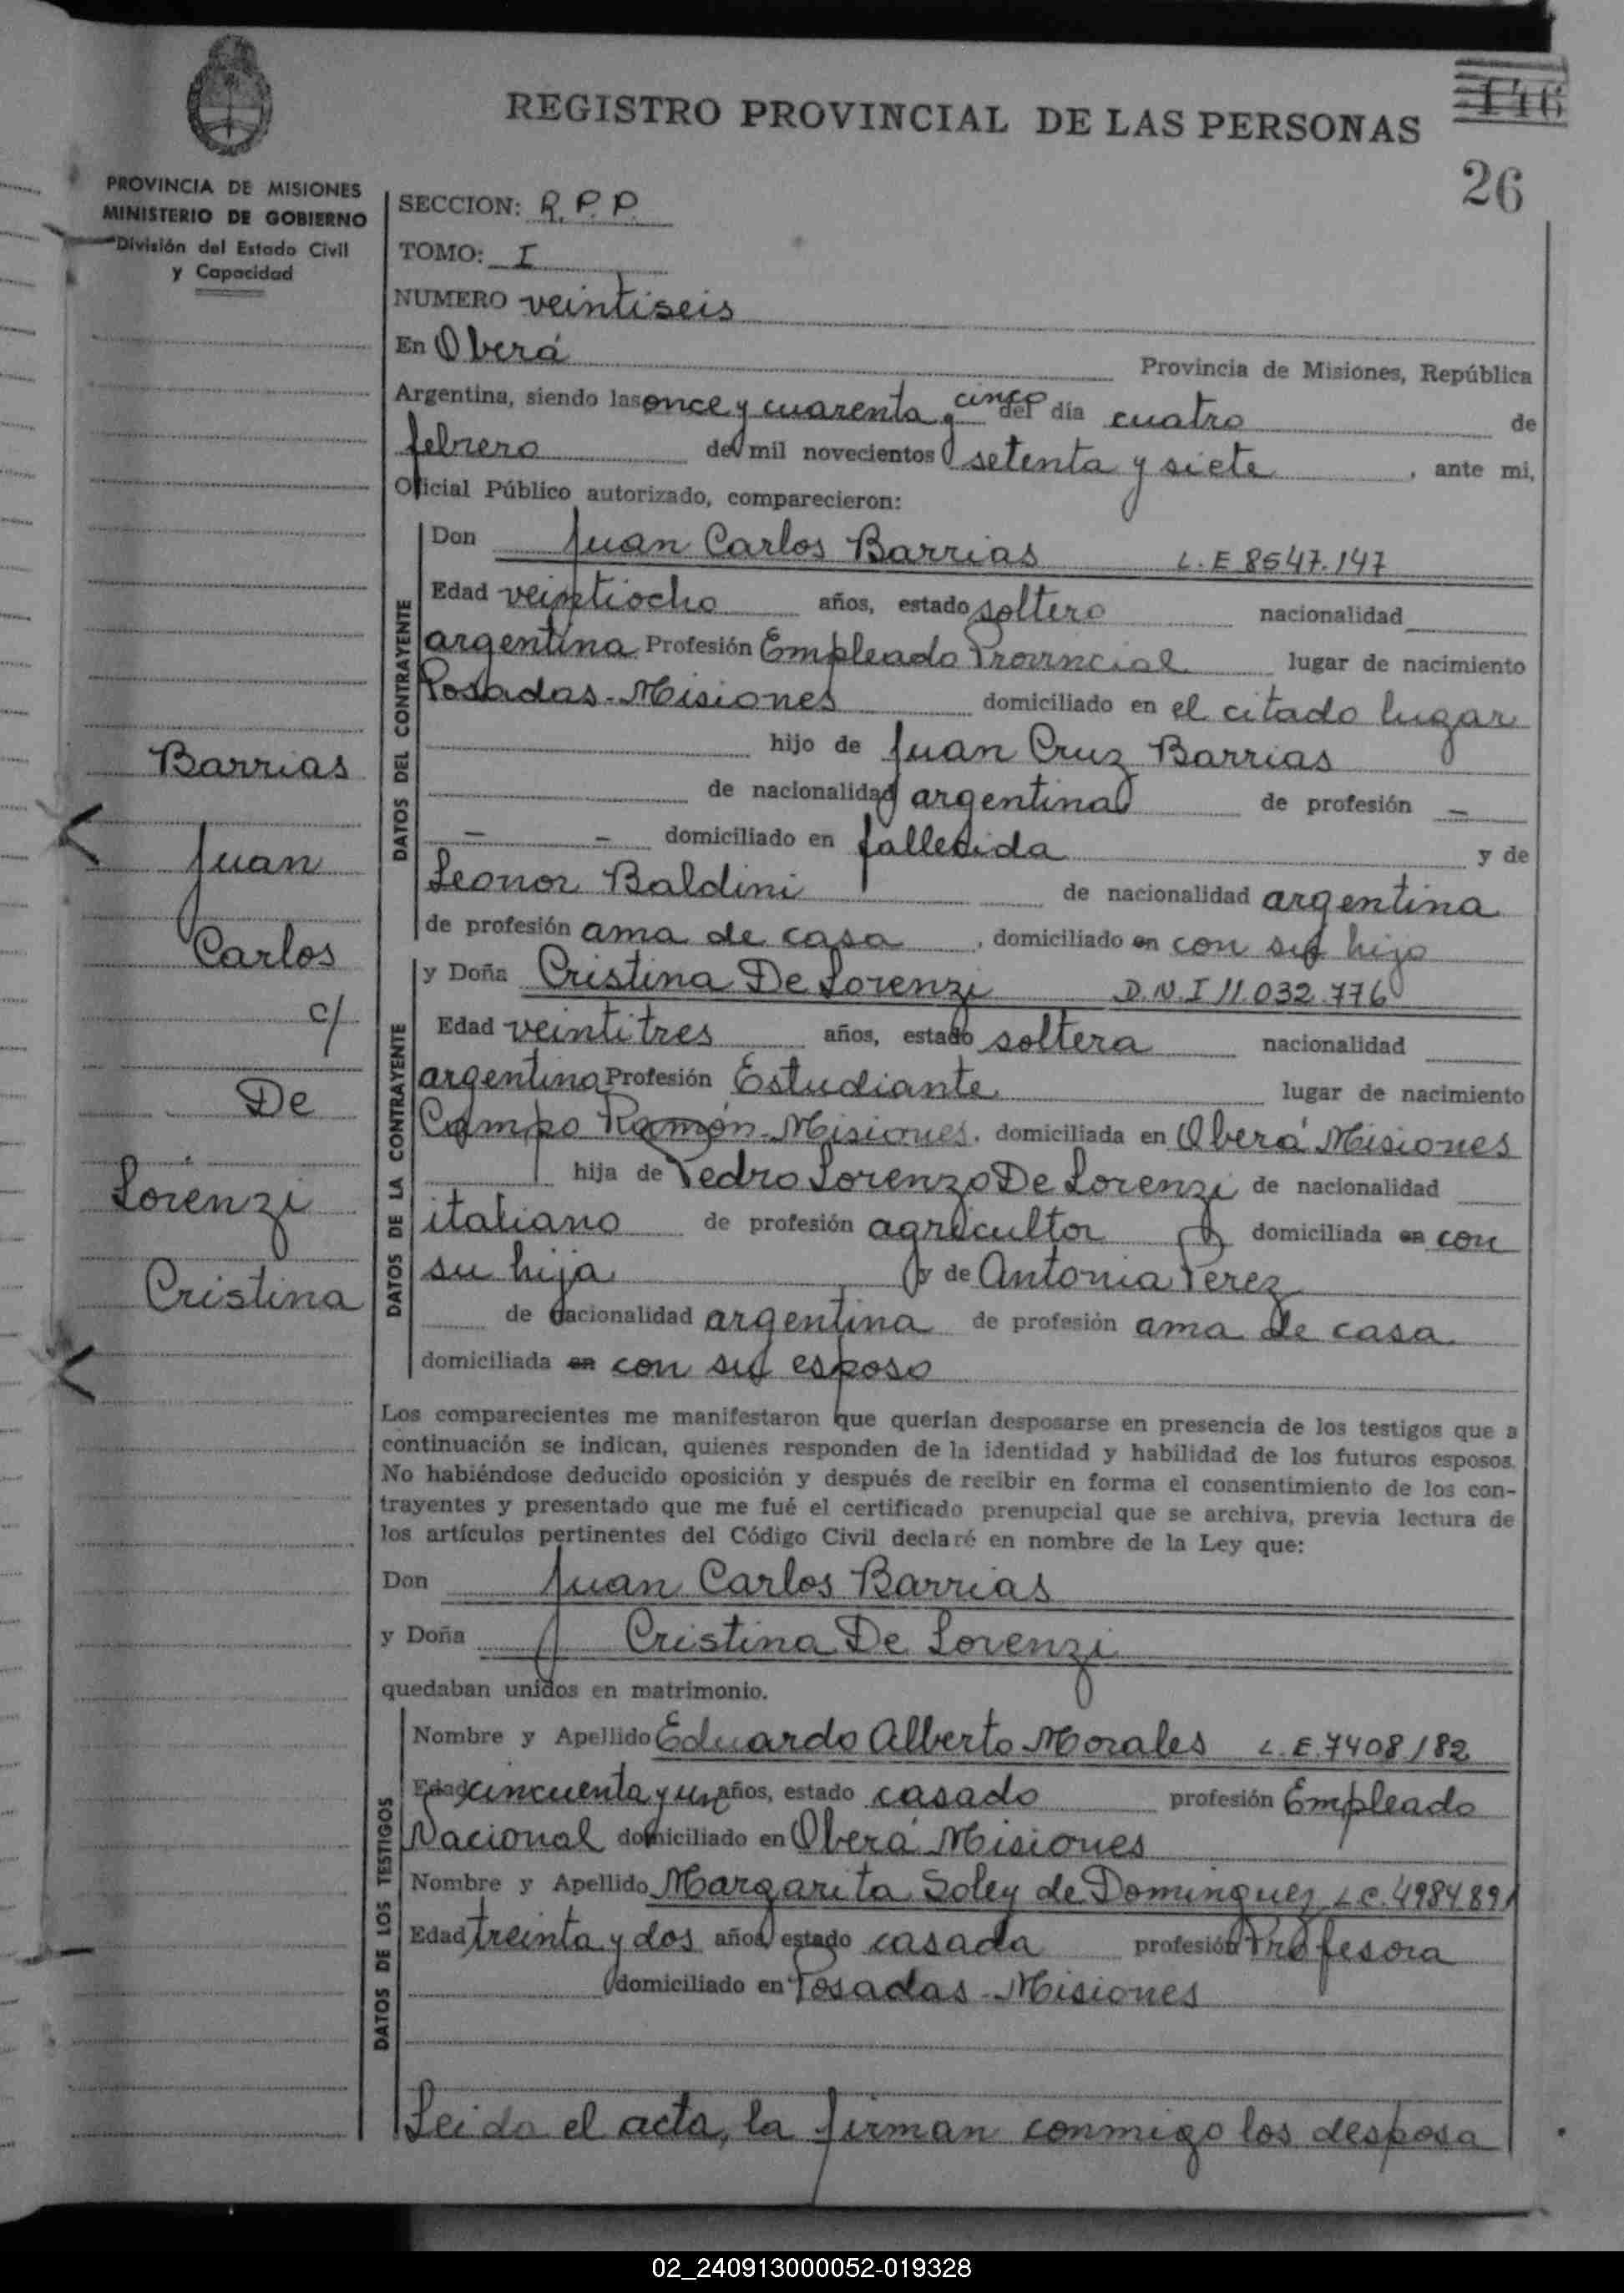 REGISTRO PROVINCIAL DE LAS PERSONAS
146
26
PROVINCIA DE MISIONES
MINISTERIO DE GOBIERNO
División del Estado Civil
y Capacidad
SECCION: R.P.P.
TOMO: I
NUMERO veintiseis
En Oberá Provincia de Misiones, República
Argentina, siendo las once y cuarenta y cinco del día cuatro de
febrero de mil novecientos setenta y siete, ante mi,
Oficial Público autorizado, comparecieron:
DATOS DEL CONTRAYENTE
Don Juan Carlos Barrias L.E 8547.147
Edad veintiocho años, estado soltero nacionalidad
argentina Profesión Empleado Provincial lugar de nacimiento
Posadas-Misiones domiciliado en el citado lugar
hijo de Juan Cruz Barrias
de nacionalidad argentina de profesión —
— — domiciliado en fallecida y de
Leonor Baldini de nacionalidad argentina
de profesión ama de casa, domiciliado en con su hijo
Barrias
Juan
Carlos
c/
De
Lorenzi
Cristina
DATOS DE LA CONTRAYENTE
y Doña Cristina De Lorenzi D.N.I 11.032.776
Edad veintitres años, estado soltera nacionalidad
argentina Profesión Estudiante lugar de nacimiento
Campo Ramón-Misiones. domiciliada en Oberá Misiones
hija de Pedro Lorenzo De Lorenzi de nacionalidad
italiano de profesión agricultor domiciliada en con
su hija y de Antonia Perez
de nacionalidad argentina de profesión ama de casa
domiciliada en con su esposo
Los comparecientes me manifestaron que querían desposarse en presencia de los testigos que a
continuación se indican, quienes responden de la identidad y habilidad de los futuros esposos.
No habiéndose deducido oposición y después de recibir en forma el consentimiento de los con-
trayentes y presentado que me fué el certificado prenupcial que se archiva, previa lectura de
los artículos pertinentes del Código Civil declaré en nombre de la Ley que:
Don Juan Carlos Barrias
y Doña Cristina De Lorenzi
quedaban unidos en matrimonio.
DATOS DE LOS TESTIGOS
Nombre y Apellido Eduardo Alberto Morales L.E.7408182
Edad cincuenta y un años, estado casado profesión Empleado
Nacional domiciliado en Oberá Misiones
Nombre y Apellido Margarita Soley de Dominguez L.C.4984891
Edad treinta y dos años, estado casada profesión Profesora
domiciliado en Posadas-Misiones
Leida el acta, la firman conmigo los desposa
02_240913000052-019328